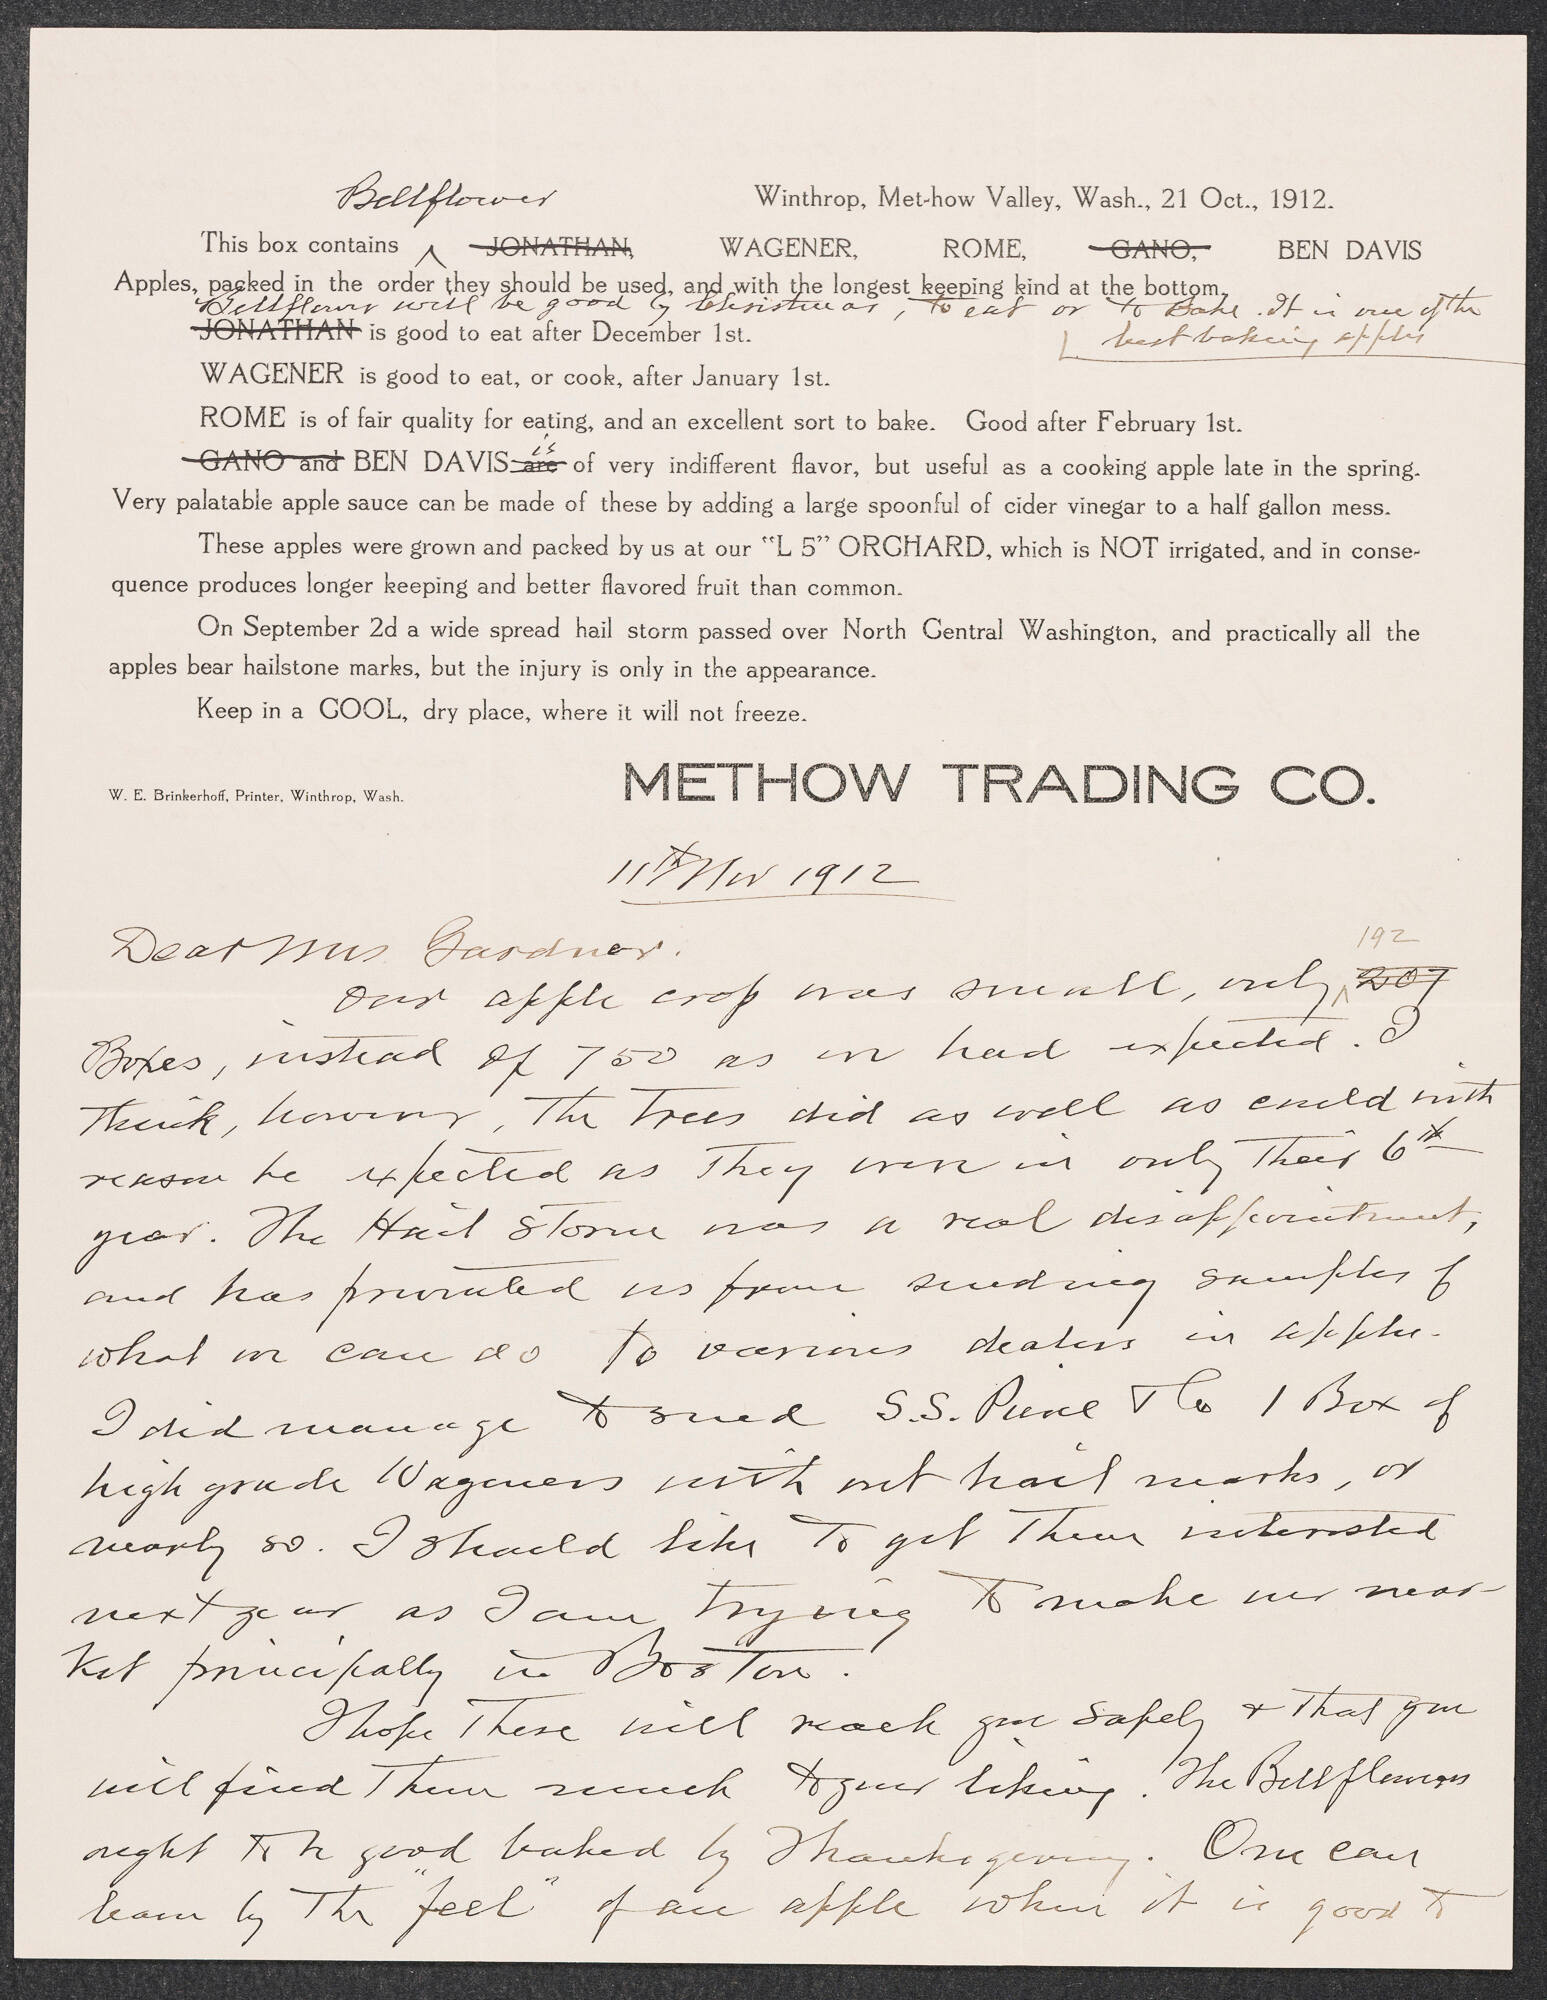 Bellflower
Winthrop, Met-how Valley, Wash., 21 Oct., 1912.
This box contains ^ JONATHAN, WAGENER, ROME, GANO, BEN DAVIS
Apples, packed in the order they should be used, and with the longest keeping kind at the bottom.
Bellflower will be good by Christmas, to eat or to Bake. It is one of the
best baking apples
JONATHAN is good to eat after December 1st.
WAGENER is good to eat, or cook, after January 1st.
ROME is of fair quality for eating, and an excellent sort to bake. Good after February 1st.
is
GANO and BEN DAVIS are of very indifferent flavor, but useful as a cooking apple late in the spring.
Very palatable apple sauce can be made of these by adding a large spoonful of cider vinegar to a half gallon mess.
These apples were grown and packed by us at our "L 5" ORCHARD, which is NOT irrigated, and in conse-
quence produces longer keeping and better flavored fruit than common.
On September 2d a wide spread hail storm passed over North Central Washington, and practically all the
apples bear hailstone marks, but the injury is only in the appearance.
Keep in a COOL, dry place, where it will not freeze.
METHOW TRADING CO.
W. E. Brinkerhoff, Printer, Winthrop, Wash.
11th Nov 1912
Dear Mrs Gardner.
192
Our apple crop was small, only ^ 207
Boxes, instead of 750 as we had expected. I
think, however, the trees did as well as could with
reason be expected as they were in only their 6th
year. The Hail storm was a real disappointment,
and has prevented us from sending samples of
what we can do to various dealers in apples.
I did manage to send S.S. Pierce & Co 1 Box of
high grade Wageners with out hail marks, or
nearly so. I should like to get them interested
next year as I am trying to make our mar-
ket principally in Boston.
I hope these will reach you safely & that you
will find them much to your liking. The Bellflowers
ought to be good baked by Thanksgiving. One can
learn by the "feel" of an apple when it is good to